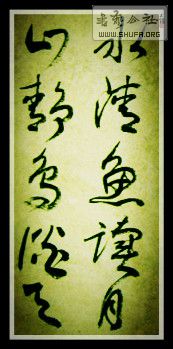 水清魚讀月
山靜鳥談天
書法合社
WWW.SHUFA.ORG